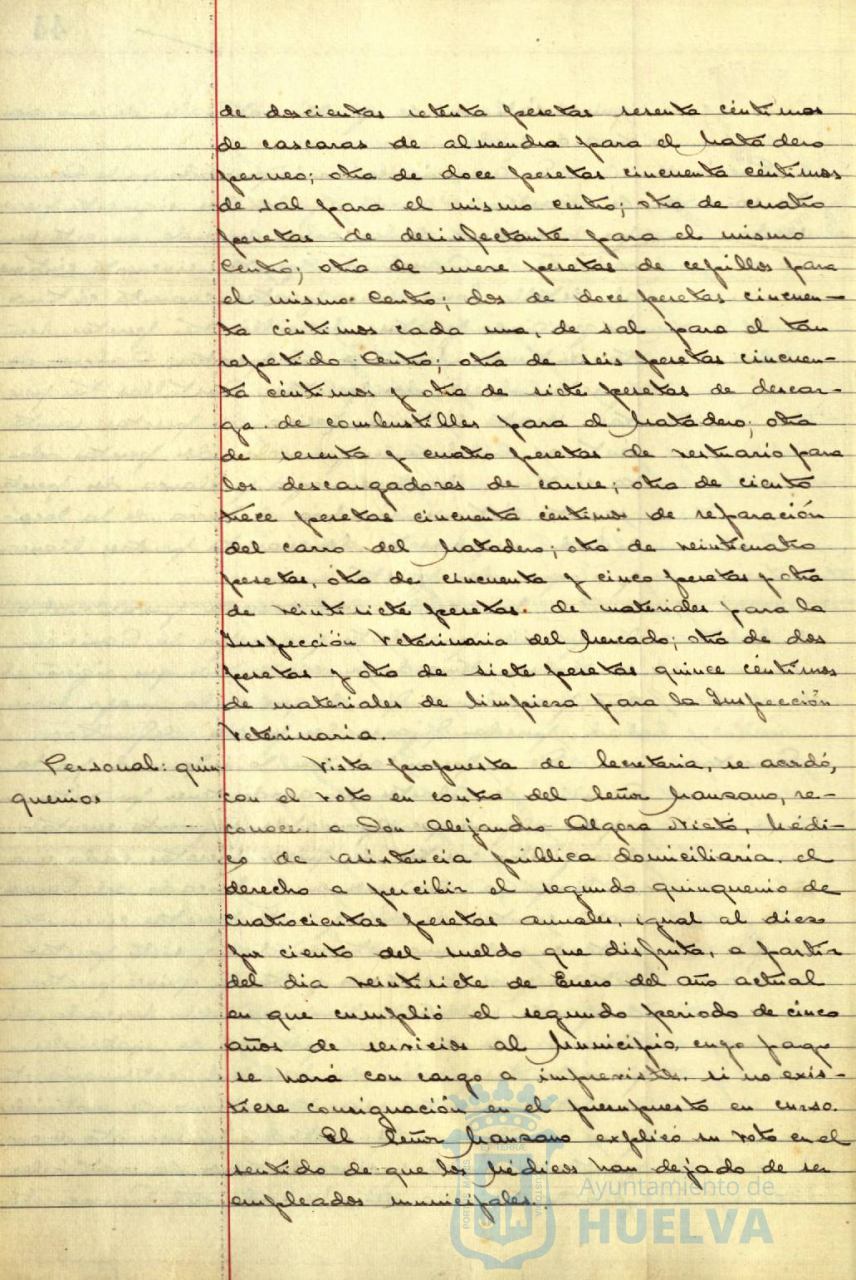 de doscientas setenta pesetas sesenta céntimos
de cascaras de almendra para el Matadero
perneo; otra de doce pesetas cincuenta céntimos
de sal para el mismo centro; otra de cuatro
pesetas de desinfectante para el mismo
Centro; otra de nueve pesetas de cepillos para
el mismo Centro; dos de doce pesetas cincuen-
ta céntimos cada una, de sal para el tan
repetido Centro; otra de seis pesetas cincuen-
ta céntimos y otra de siete pesetas de descar-
ga de combustibles para el Matadero; otra
de sesenta y cuatro pesetas de vestuario para
los descargadores de carne; otra de ciento
trece pesetas cincuenta céntimos de reparación
del carro del Matadero; otra de veinticuatro
pesetas, otra de cincuenta y cinco pesetas y otra
de veintisiete pesetas. de materiales para la
Inspección Veterinaria del Mercado; otra de dos
pesetas y otra de siete pesetas quince céntimos
de materiales de limpieza para la Inspección
Veterinaria.
Personal: quin-
quenios
Vista propuesta de Secretaria, se acordó,
con el voto en contra del Señor Manzano, re-
conocer a Don Alejandro Algora Nieto, Médi-
co de asistencia pública domiciliaria, el
derecho a percibir el segundo quinquenio de
cuatrocientas pesetas anuales, igual al diez
por ciento del sueldo que disfruta, a partir
del dia veintisiete de Enero del año actual
en que cumplió el segundo periodo de cinco
años de servicios al Municipio, cuyo pago
se hará con cargo a imprevistos, si no exis-
tiese consignación en el presupuesto en curso.
El Señor Manzano explicó su voto en el
sentido de que los Médicos han dejado de ser
empleados municipales.
Ayuntamiento de
HUELVA